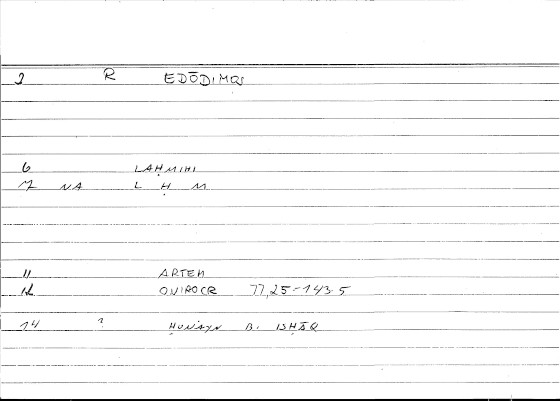 2 R EDŌDIMOS
6 LAḤMIHI
7 NA L Ḥ M
11 ARTEM
12 ONIROCR 77,25-143.5
14 ? ḤUNAYN B. ISḤĀQ